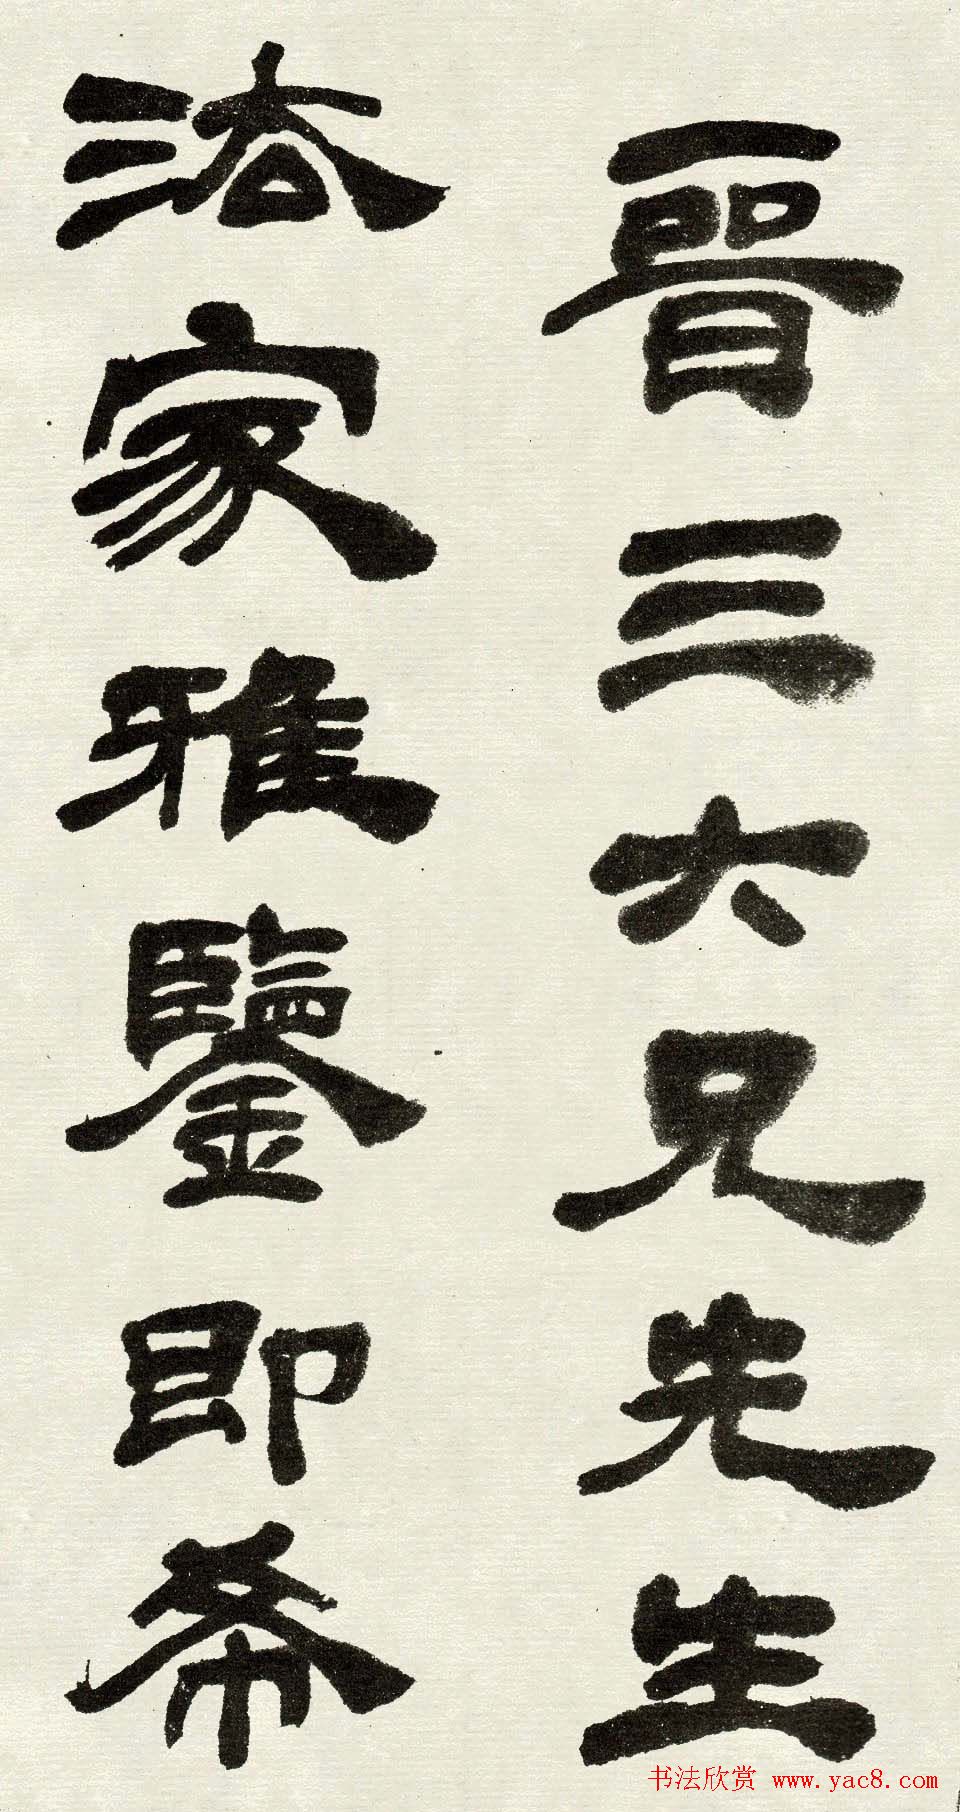 晉三六兄先生
法家雅鑒即希
书法欣赏 www.yac8.com